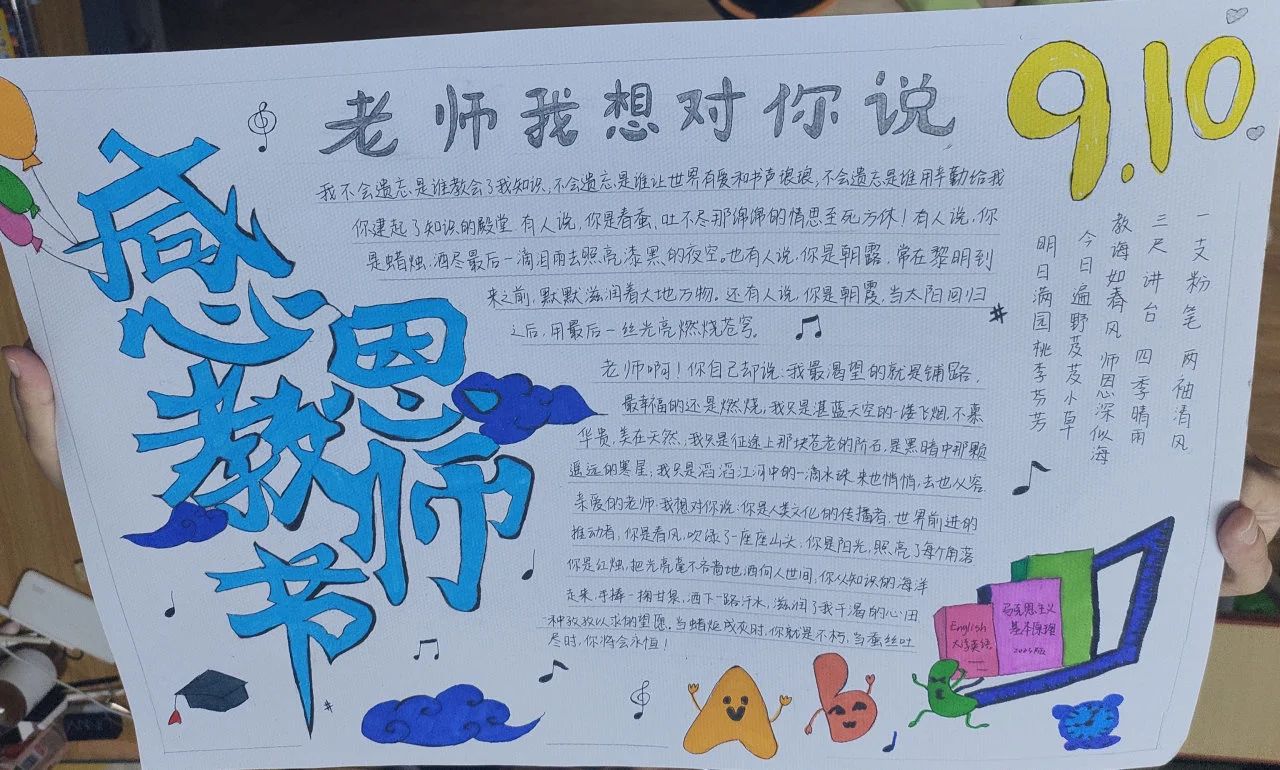 老师我想对你说
9.10
感恩教师节
我不会遗忘是谁教会了我知识,不会遗忘是谁让世界有爱和书声琅琅,不会遗忘是谁用辛勤给我
你建起了知识的殿堂 有人说,你是春蚕,吐不尽那绵绵的情思至死方休!有人说,你
是蜡烛,洒尽最后一滴泪雨去照亮漆黑的夜空。也有人说,你是朝露,常在黎明到
来之前,默默滋润着大地万物。还有人说,你是朝霞,当太阳回归
之后,用最后一丝光亮燃烧苍穹。
老师啊!你自己却说:我最渴望的就是铺路,
最幸福的还是燃烧,我只是湛蓝天空的一缕飞烟,不慕
华贵,美在天然,我只是征途上那块苍老的历石,是黑暗中那颗
遥远的寒星,我只是滔滔江河中的一滴水珠 来也悄悄,去也从容.
亲爱的老师,我想对你说:你是人类文化的传播者,世界前进的
推动者,你是春风,吹绿了一座座山头,你是阳光,照亮了每个角落
你是红烛,把光亮毫不吝啬地洒向人世间,你从知识的海洋
走来,手捧一掬甘泉,洒下一路汗水,滋润了我干渴的心田
一种孜孜以求的塑愿,当蜡炬成灰时,你就是不朽,当蚕丝吐
尽时,你将会永恒!
一支粉笔 两袖清风
三尺讲台 四季晴雨
教诲如春风 师恩深似海
今日遍野芨芨小草
明日满园桃李芳芳
English
大学英语
马克思主义
基本原理